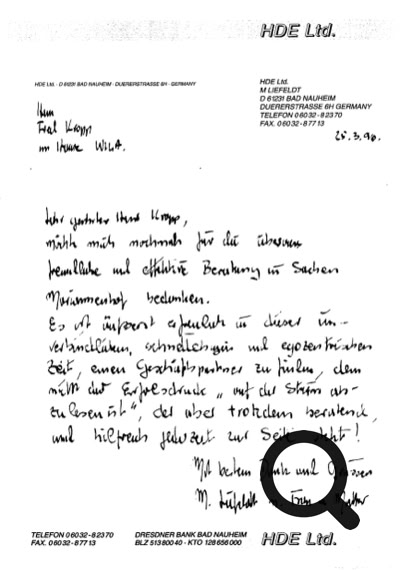 HDE Ltd.
HDE Ltd. · D 61231 BAD NAUHEIM · DUERERSTRASSE 6H · GERMANY
HDE Ltd.
M LIEFELDT
D 61231 BAD NAUHEIM
DUERERSTRASSE 6H GERMANY
TELEFON 06032-82370
FAX. 06032-87713
25.3.96.
Herrn
Fred Kropp
im Hause WILA.
Sehr geehrter Herr Kropp,
möchte mich nochmals für die überaus
freundliche und effektive Beratung in Sachen
Mariannenhof bedanken.
Es ist äußerst erfreulich in dieser un-
verbindlichen, schnellebigen und egozentrischen
Zeit, einen Geschäftspartner zu finden, dem
nicht der Erfolgsdruck „auf der Stirn ab-
zulesen ist", der aber trotzdem beratend,
und hilfreich jederzeit zur Seite steht!
Mit bestem Dank und Grüssen
M. Liefeldt
TELEFON 06032-82370
FAX. 06032-87713
DRESDNER BANK BAD NAUHEIM
BLZ 51380040 · KTO 128656000
HDE Ltd.